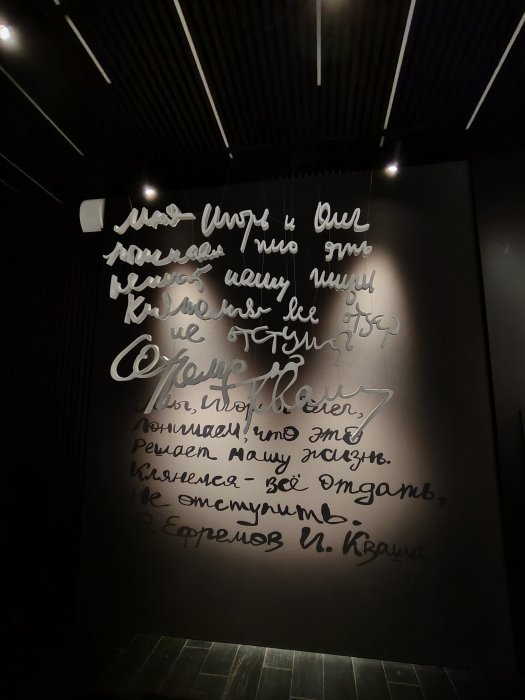 мы Игорь и Олег
понимаем что это
решает нашу жизнь
Клянемся все отдать
не отступить
ОЕфремов Кваша
Мы, Игорь и Олег,
понимаем, что это
решает нашу жизнь.
Клянемся - всё отдать,
не отступить.
О. Ефремов И. Кваша